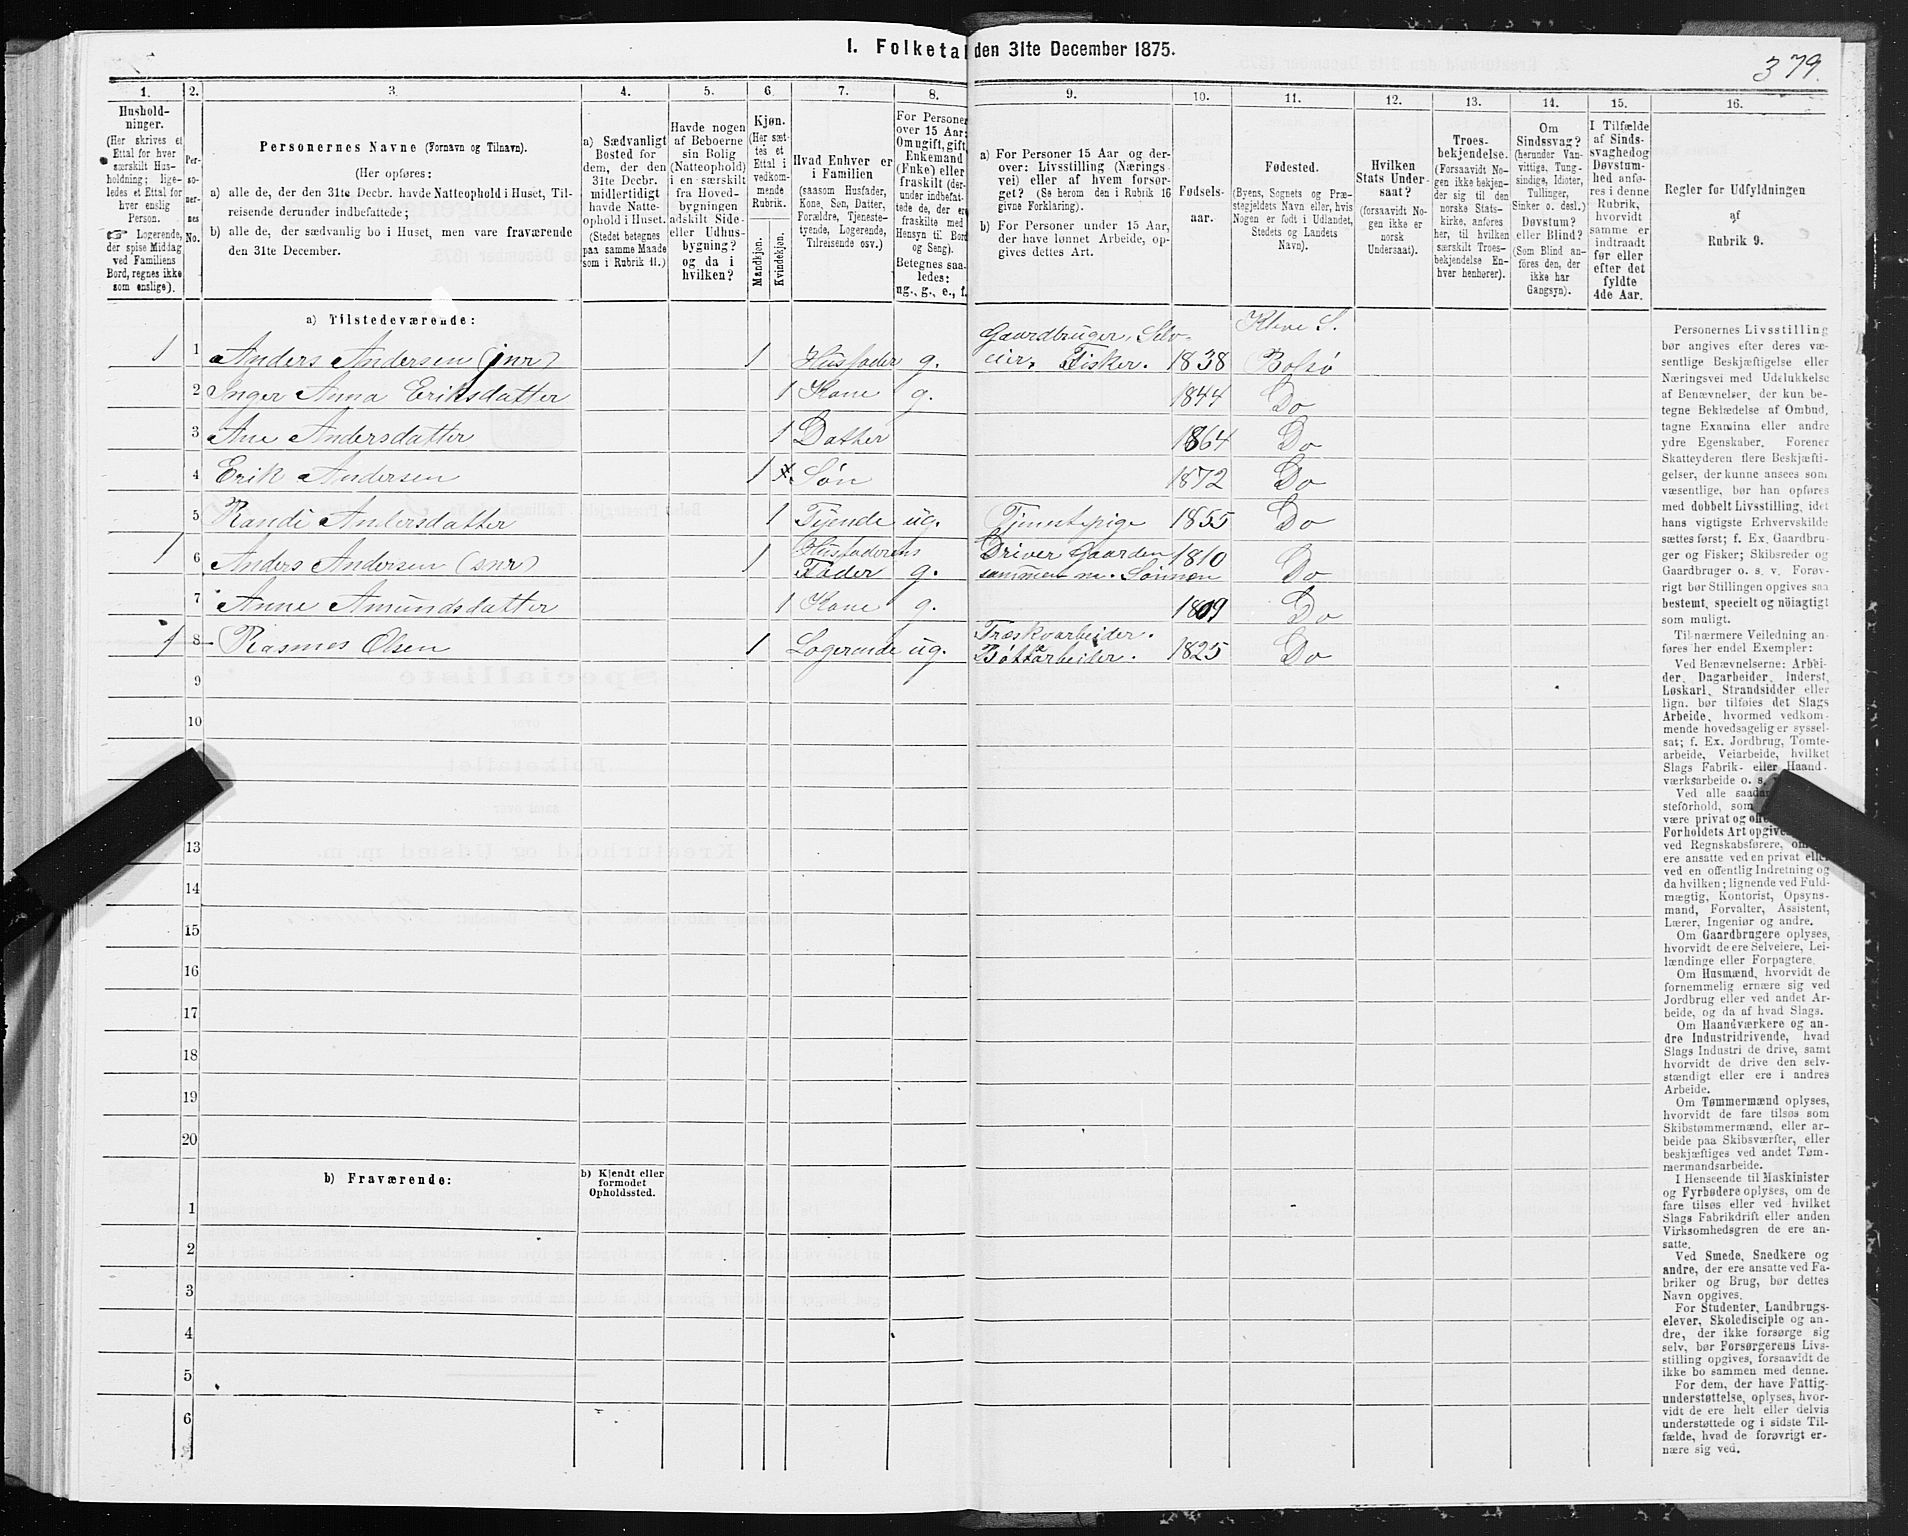 I. Folketal den 31te December 1875.
379.
1. 2. 3. 4. 5. 6. 7. 8. 9. 10. 11. 12. 13. 14. 15. 16.
Hushold-
ninger.
(Her skrives et
Ettal for hver
særskilt Hus-
holdning; lige-
ledes et Ettal for
hver enslig
Person.
☞ Logerende,
der spise Middag
ved Familiens
Bord, regnes ikke
som enslige).
Per-
so-
ner-
nes
No.
Personernes Navne (Fornavn og Tilnavn).
(Her opføres:
a) alle de, der den 31te Decbr. havde Natteophold i Huset, Til-
reisende derunder indbefattede;
b) alle de, der sædvanlig bo i Huset, men vare fraværende
den 31te December.
a) Sædvanligt
Bosted for
dem, der den
31te Decbr.
midlertidigt
havde Natte-
ophold i Huset.
(Stedet betegnes
paa samme Maade
som i Rubrik 11.)
Havde nogen
af Beboerne
sin Bolig
(Natteophold)
i en særskilt
fra Hoved-
bygningen
adskilt Side-
eller Udhus-
bygning?
og da i
hvilken?
Kjøn.
(Her sæt-
tes et
Ettal i
vedkom-
mende
Rubrik.
Mandkjøn.
Kvindekjøn.
Hvad Enhver er
i Familien
(saasom Husfader,
Kone, Søn, Datter,
Forældre, Tjeneste-
tyende, Logerende,
Tilreisende osv.)
For Personer
over 15 Aar:
Om ugift, gift,
Enkemand
(Enke) eller
fraskilt (der-
under indbefat-
tede de, der ere
fraskilte med
Hensyn til Bord
og Seng).
Betegnes saa-
ledes:
ug., g., e., f.
a) For Personer 15 Aar og der-
over: Livsstilling (Nærings-
vei) eller af hvem forsør-
get? (Se herom den i Rubrik 16
givne Forklaring).
b) For Personer under 15 Aar,
der have lønnet Arbeide, op-
gives dettes Art.
Fødsels-
aar.
Fødested.
(Byens, Sognets og Præ-
stegjeldets Navn eller, hvis
Nogen er født i Udlandet,
Stedets og Landets
Navn).
Hvilken
Stats Under-
saat?
(forsaavidt No-
gen ikke er
norsk
Undersaat).
Troes-
bekjendelse.
(Forsaavidt No-
gen ikke bekjen-
der sig til den
norske Stats-
kirke, anføres
her, til hvilken
særskilt Troes-
bekjendelse En-
hver henhører).
Om
Sindssvag?
(herunder Van-
vittige, Tung-
sindige, Idioter,
Tullinger,
Sinker o. desl.)
Døvstum?
eller Blind?
(Som Blind an-
føres den, der
ikke har
Gangsyn).
I Tilfælde
af Sinds-
svaghed og
Døvstum-
hed anfø-
res i denne
Rubrik,
hvorvidt
samme er
indtraadt
før eller
efter det
fyldte
4de Aar.
Regler for Udfyldningen
af
Rubrik 9.
a) Tilstedeværende:
Kleve S.
1 1 Anders Andersen (jnr) 1 Husfader g. Gaardbruger, Selv-
eier, Fisker. 1838 Bolsø
2 Inger Anna Eriksdatter 1 Kone g. 1844 Do
3 Ane Andersdatter 1 Datter 1864 Do
4 Erik Andersen 1 Søn 1872 Do
5 Randi Andersdatter 1 Tjende ug. Tjenestepige 1855 Do
1 6 Anders Andersen (snr) 1 Husfaderens
Fader g. Driver Gaarden
sammen m. Sønnen 1810 Do
7 Anne Amundsdatter 1 Kone g. 1809 Do
1 8 Rasmus Olsen 1 Logerende ug. Træskoarbeider.
Bøtkarbeider. 1825 Do
9
10
13
14
15
16
17
18
19
20
b) Fraværende:
b) Kjendt eller
formodet
Opholdssted.
1
2
3
4
5
6
Personernes Livsstilling
bør angives efter deres væ-
sentlige Beskjæftigelse eller
Næringsvei med Udelukkelse
af Benævnelser, der kun be-
tegne Beklædelse af Ombud,
tagne Examina eller andre
ydre Egenskaber. Forener
Skatteyderen flere Beskjæfti-
gelser, der kunne ansees som
væsentlige, bør han opføres
med dobbelt Livsstilling, idet
hans vigtigste Erhvervskilde
sættes først; f. Ex. Gaardbru-
ger og Fisker; Skibsreder og
Gaardbruger o. s. v. Forøv-
rigt bør Stillingen opgives saa
bestemt, specielt og nøiagtigt
som muligt.
Til nærmere Veiledning an-
føres her endel Exempler:
Ved Benævnelserne: Arbei-
der, Dagarbeider, Inderst,
Løskarl, Strandsidder eller
lign. bør tilføies det Slags
Arbeide, hvormed vedkom-
mende hovedsagelig er syssel-
sat; f. Ex. Jordbrug, Tomte-
arbeide, Veiarbeide, hvilket
Slags Fabrik- eller Haand-
værksarbeide o. s.
Ved alle
steforhold, som
være privat og
Forholdets Art
ved Regnskabsførere,
ere ansatte ved en privat eller
ved en offentlig Indretning og
da hvilken; lignende ved Fuld-
mægtig, Kontorist, Opsyns-
mand, Forvalter, Assistent,
Lærer, Ingeniør og andre.
Om Gaardbrugere oplyses,
hvorvidt de ere Selveiere, Lei-
lændinge eller Forpagtere.
Om Husmænd, hvorvidt de
fornemmelig ernære sig ved
Jordbrug eller ved andet Ar-
beide, og da af hvad Slags.
Om Haandværkere og an-
dre Industridrivende, hvad
Slags Industri de drive, samt
hvorvidt de drive den selv-
stændigt eller ere i andres
Arbeide.
Om Tømmermænd oplyses,
hvorvidt de fare tilsøs som
Skibstømmermænd, eller ar-
beide paa Skibsværfter, eller
beskjæftiges ved andet Tøm-
mermandsarbeide.
I Henseende til Maskinister
og Fyrbødere oplyses, om de
fare tilsøs eller ved hvilket
Slags Fabrikdrift eller anden
Virksomhedsgren de ere an-
satte.
Ved Smede, Snedkere og
andre, der ere ansatte ved Fa-
briker og Brug, bør dettes
Navn opgives.
For Studenter, Landbrugs-
elever, Skoledisciple og an-
dre, der ikke forsørge sig
selv, bør Forsørgerens Livs-
stilling opgives, forsaavidt de
ikke bo sammen med denne.
For dem, der have Fattig-
understøttelse, oplyses, hvor-
vidt de ere helt eller delvis
understøttede og i sidste Til-
fælde, hvad de forøvrigt er-
nære sig ved.